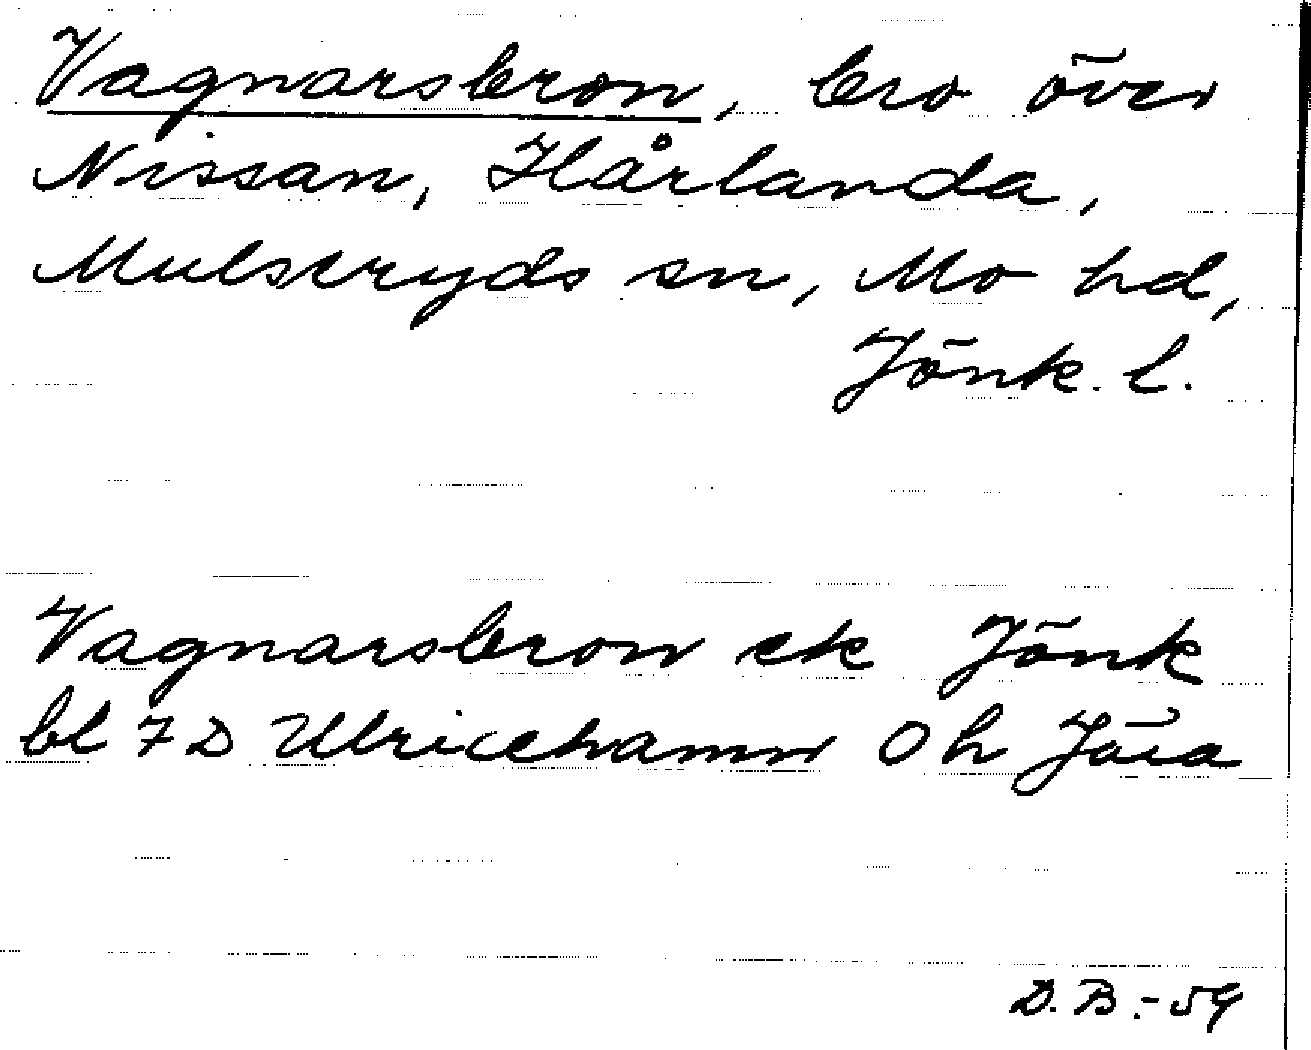 Vagnarsbron, bro över
Nissan, Hårlanda,
Mulseryds sn, Mo hd,
Jönk. l.
Vagnarsbron ek Jönk
bl 7 D Ulricehamn Oh Jära
D. B. - 59